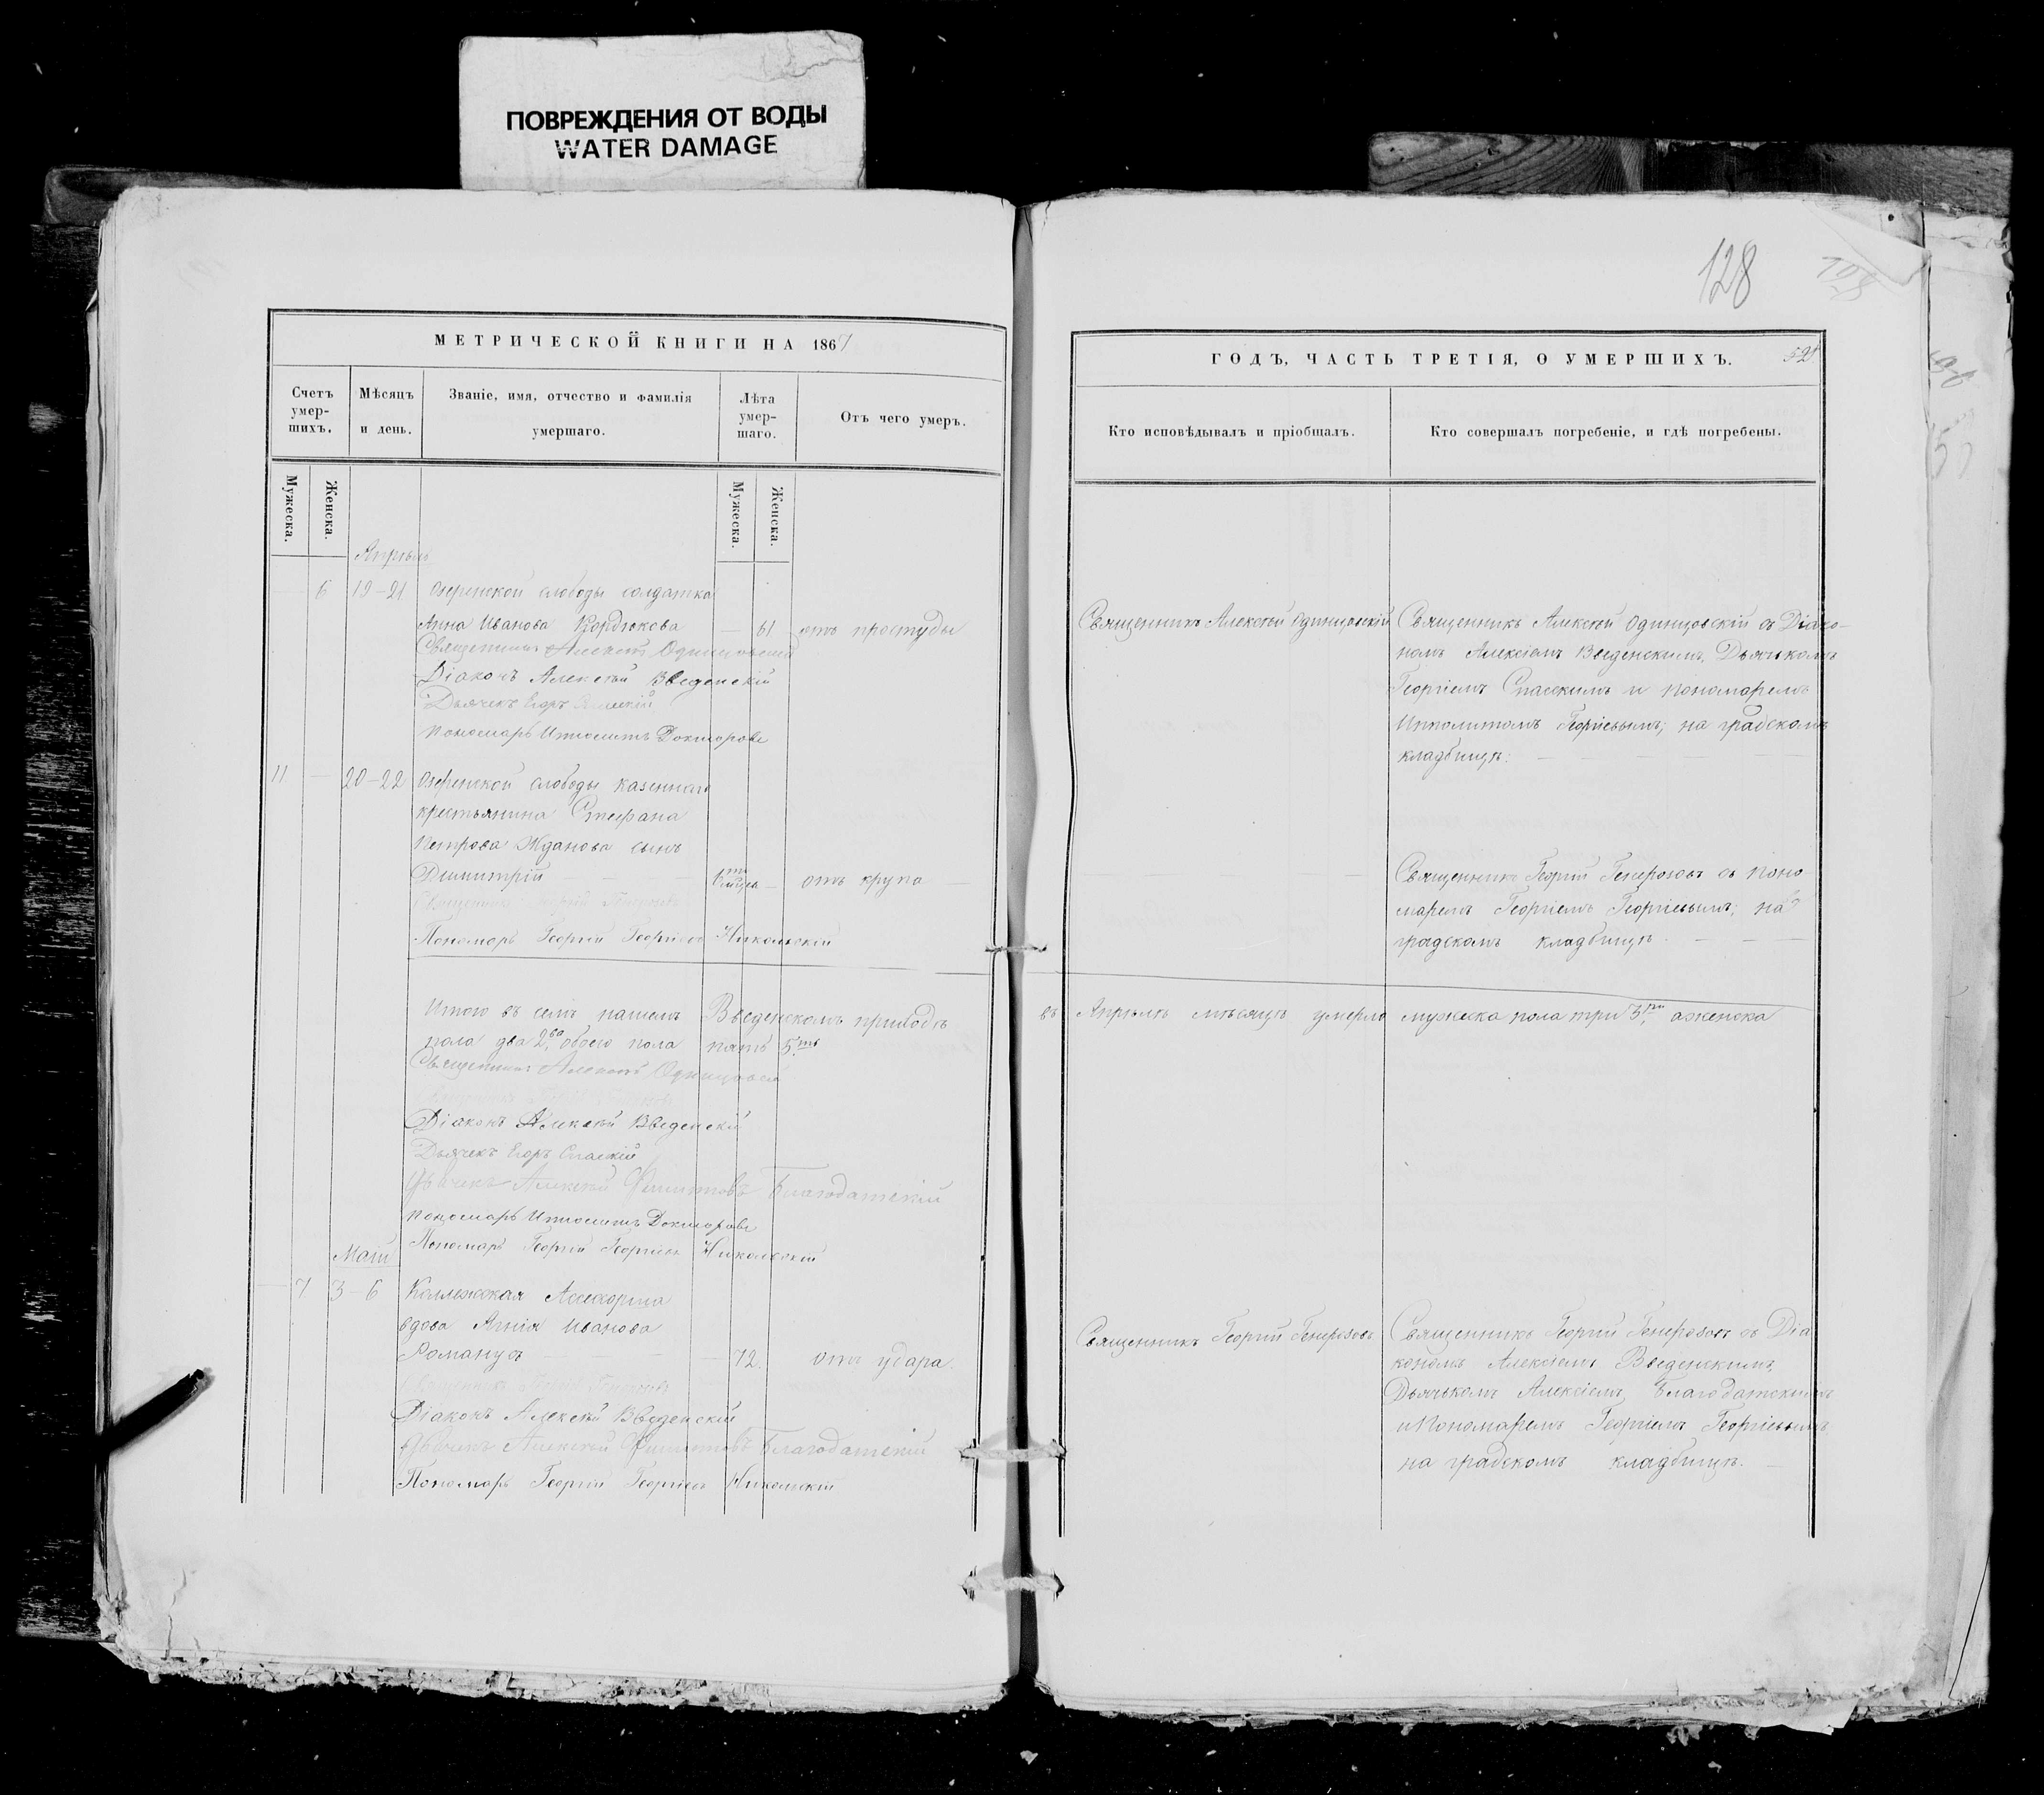 ПОВРЕЖДЕНИЯ ОТ ВОДЫ
WATER DAMAGE
128
МЕТРИЧЕСКОЙ КНИГИ НА 1867
Счетъ умер-шихъ.
Мѣсяцъ и день.
Званіе, имя, отчество и фамилія умершаго.
Лѣта умер-шаго.
Отъ чего умеръ.
Мужеска.
Женска.
Мужеска.
Женска.
Апрѣль
6 19-21 Озеренской слободы солдатка
Анна Иванова Кордюкова — 61 отъ простуды
Священникъ Алексѣй Одинцовскій
Діаконъ Алексѣй Введенскій
Дьячекъ Егоръ Спасскій
Пономарь Ипполитъ
11 — 20-22 Озеренской слободы казеннаго
крестьянина Стефана
Петрова Жданова сынъ
Димитрій — отъ крупа
Священникъ Георгій Генерозовъ
Пономарь Георгій Георгіевъ Никольскій
Итого въ семъ нашемъ Введенскомъ приходѣ
пола два 2, обоего пола пять 5.
Священникъ Алексѣй Одинцовскій
Діаконъ Алексѣй Введенскій
Дьячекъ Егоръ Спаскій
Дьячекъ Алексѣй Благодатскій
Пономарь Ипполитъ
Пономарь Георгій Георгіевъ Никольскій
Май
— 7 3-6 Коллежская Ассесорша
вдова Анна Иванова
Романусъ — 72. отъ удара
Священникъ Георгій Генерозовъ
Діаконъ Алексѣй Введенскій
Дьячекъ Алексѣй Благодатскій
Пономарь Георгій Георгіевъ Никольскій
ГОДЪ, ЧАСТЬ ТРЕТІЯ, О УМЕРШИХЪ.
Кто исповѣдывалъ и пріобщалъ.
Кто совершалъ погребеніе, и гдѣ погребены.
Священникъ Алексѣй Одинцовскій
Священникъ Алексѣй Одинцовскій съ Діако-
номъ Алексіемъ Введенскимъ, Дьячькомъ
Георгіемъ Спасскимъ и Пономаремъ
Ипполитомъ Георгіевымъ; на градскомъ
кладбищѣ.
Священникъ Георгій Генерозовъ съ Поно-
маремъ Георгіемъ Георгіевымъ; на
градскомъ кладбищѣ.
въ Апрѣлѣ мѣсяцѣ умерло мужеска пола три 3, а женска
Священникъ Георгій Генерозовъ
Священникъ Георгій Генерозовъ съ Діа
кономъ Алексіемъ Введенскимъ,
Дьячькомъ Алексіемъ Благодатскимъ
и Пономаремъ Георгіемъ Георгіевымъ
на градскомъ кладбищѣ.